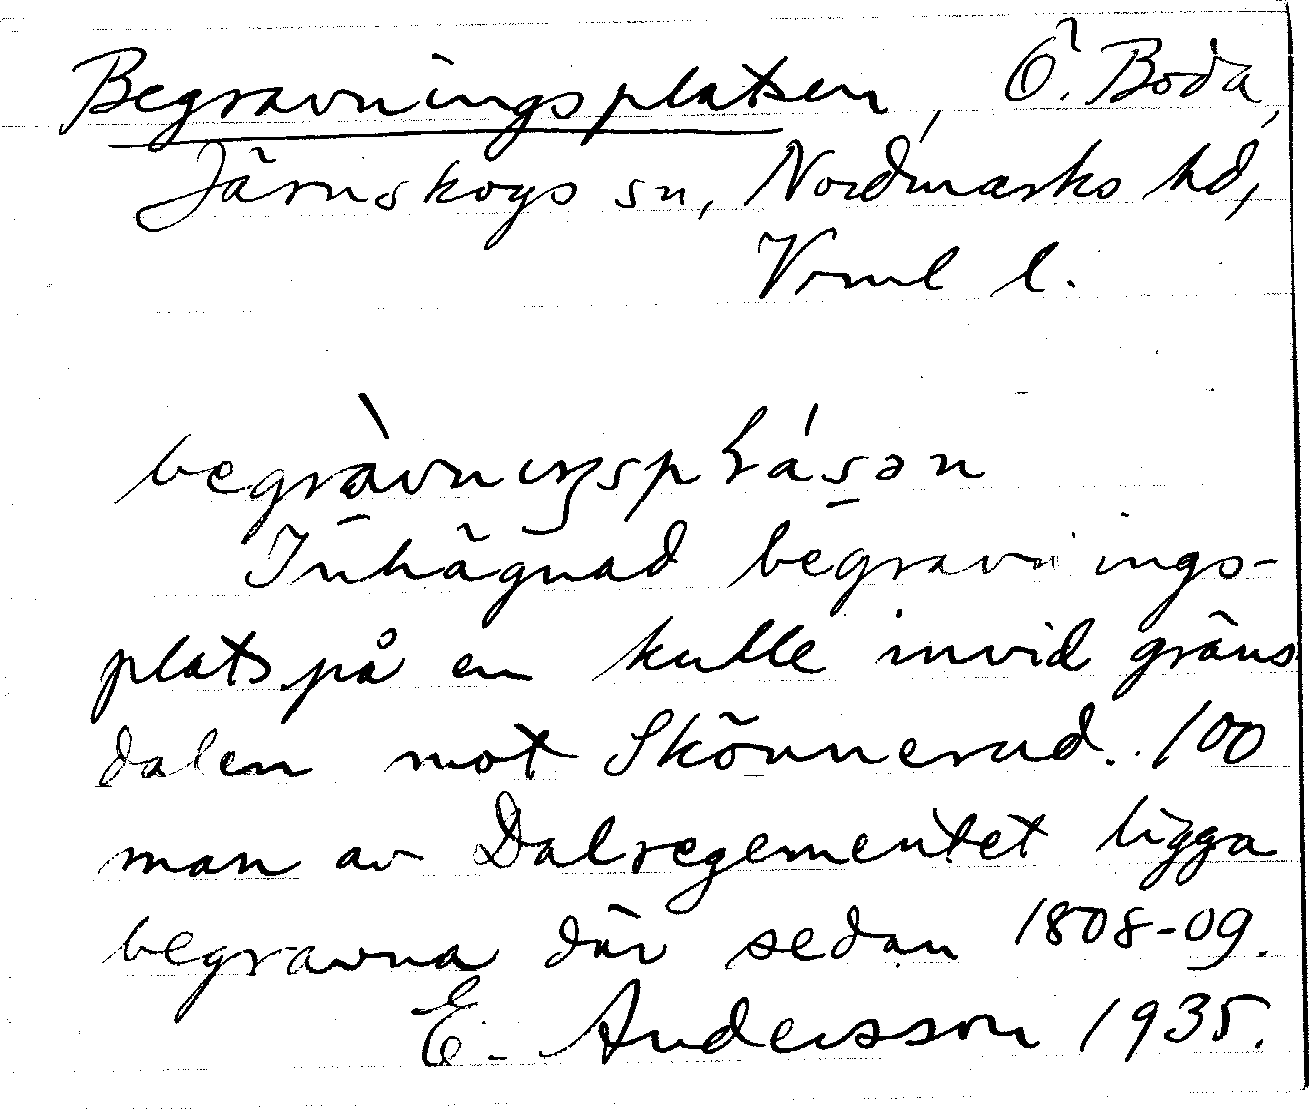 Begravningsplatsen, Ö. Boda,
Järnskogs sn, Nordmarks hd,
Vrml l.
Inhägnad begravnings-
plats på en kulle invid gräns
dalen mot Skönnerud. 100
man av Dalregementet ligga
begravna där sedan 1808-09.
E. Andersson 1935.